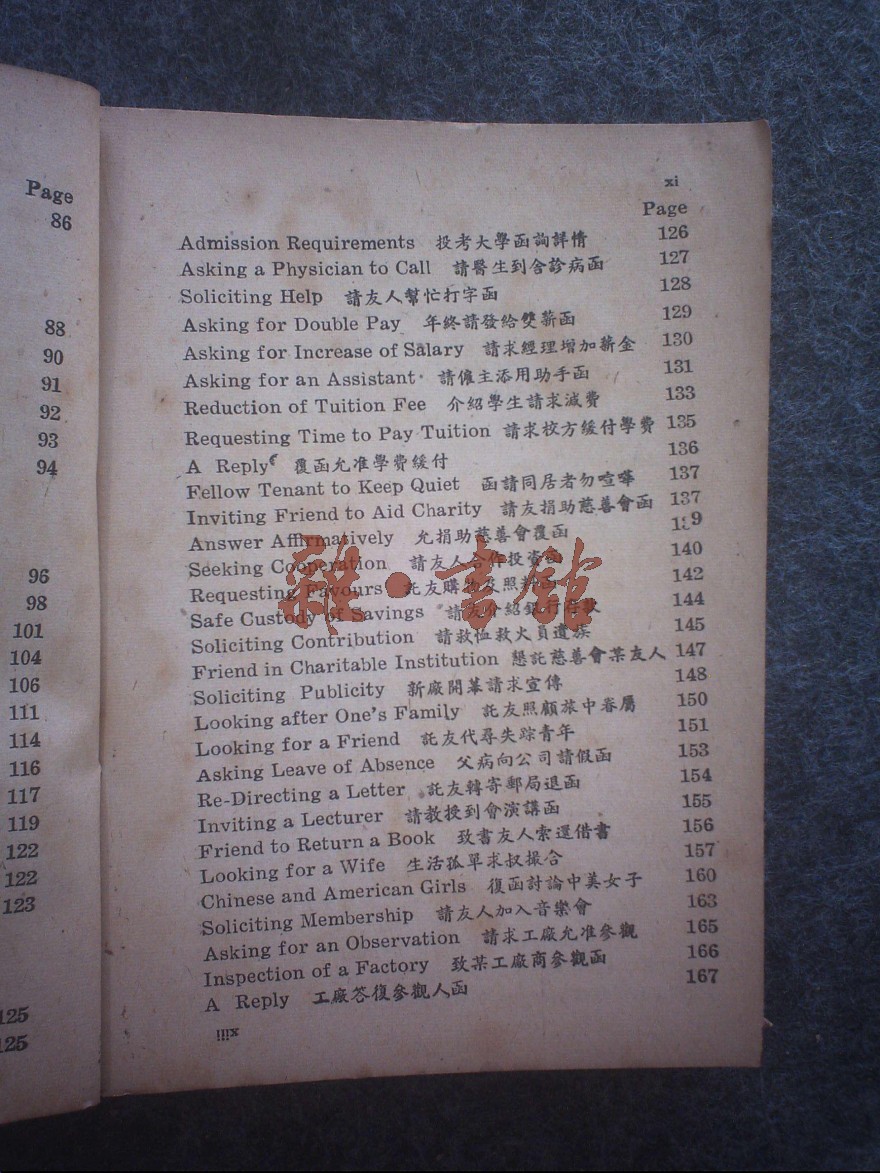 Page
86
88
90
91
92
93
94
96
98
101
104
106
111
114
116
117
119
122
122
123
125
125
xi
Page
Admission Requirements 投考大學函詢詳情 126
Asking a Physician to Call 請醫生到舍診病函 127
Soliciting Help 請友人幫忙打字函 128
Asking for Double Pay 年終請發給雙薪函 129
Asking for Increase of Salary 請求經理增加薪金 130
Asking for an Assistant 請僱主添用助手函 131
Reduction of Tuition Fee 介紹學生請求減費 133
Requesting Time to Pay Tuition 請求校方緩付學費 135
A Reply 覆函允准學費緩付 136
Fellow Tenant to Keep Quiet 函請同居者勿喧嘩 137
Inviting Friend to Aid Charity 請友捐助慈善會函 137
Answer Affirmatively 允捐助慈善會覆函 139
Seeking Cooperation 請友人合作投資函 140
Requesting Favours 託友購物及照料函 142
Safe Custody of Savings 請友介紹銀行存款 144
Soliciting Contribution 請救恤救火員遺族 145
Friend in Charitable Institution 懇託慈善會某友人 147
Soliciting Publicity 新廠開幕請求宣傳 148
Looking after One's Family 託友照顧旅中眷屬 150
Looking for a Friend 託友代尋失踪青年 151
Asking Leave of Absence 父病向公司請假函 153
Re-Directing a Letter 託友轉寄郵局退函 154
Inviting a Lecturer 請教授到會演講函 155
Friend to Return a Book 致書友人索還借書 156
Looking for a Wife 生活孤單求叔撮合 157
Chinese and American Girls 復函討論中美女子 160
Soliciting Membership 請友人加入音樂會 163
Asking for an Observation 請求工廠允准參觀 165
Inspection of a Factory 致某工廠商參觀函 166
A Reply 工廠答復參觀人函 167
xiii
雜·書館